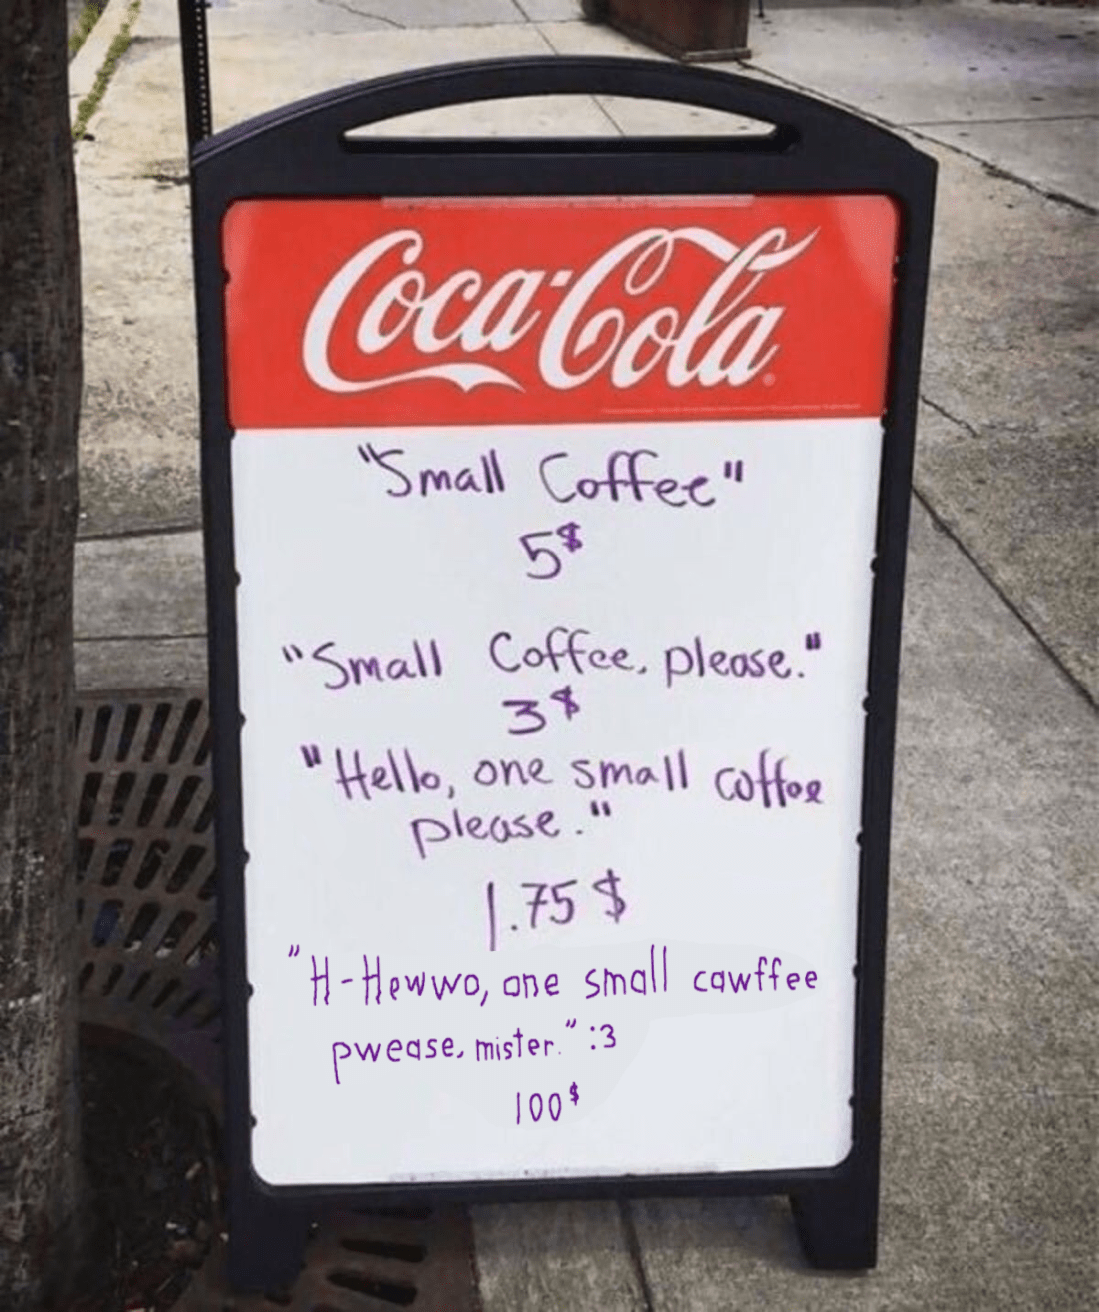 Coca-Cola
"Small Coffee"
5$
"Small Coffee, please."
3$
"Hello, one small coffee
please."
1.75$
"H-Hewwo, one small cawffee
pwease, mister." :3
100$